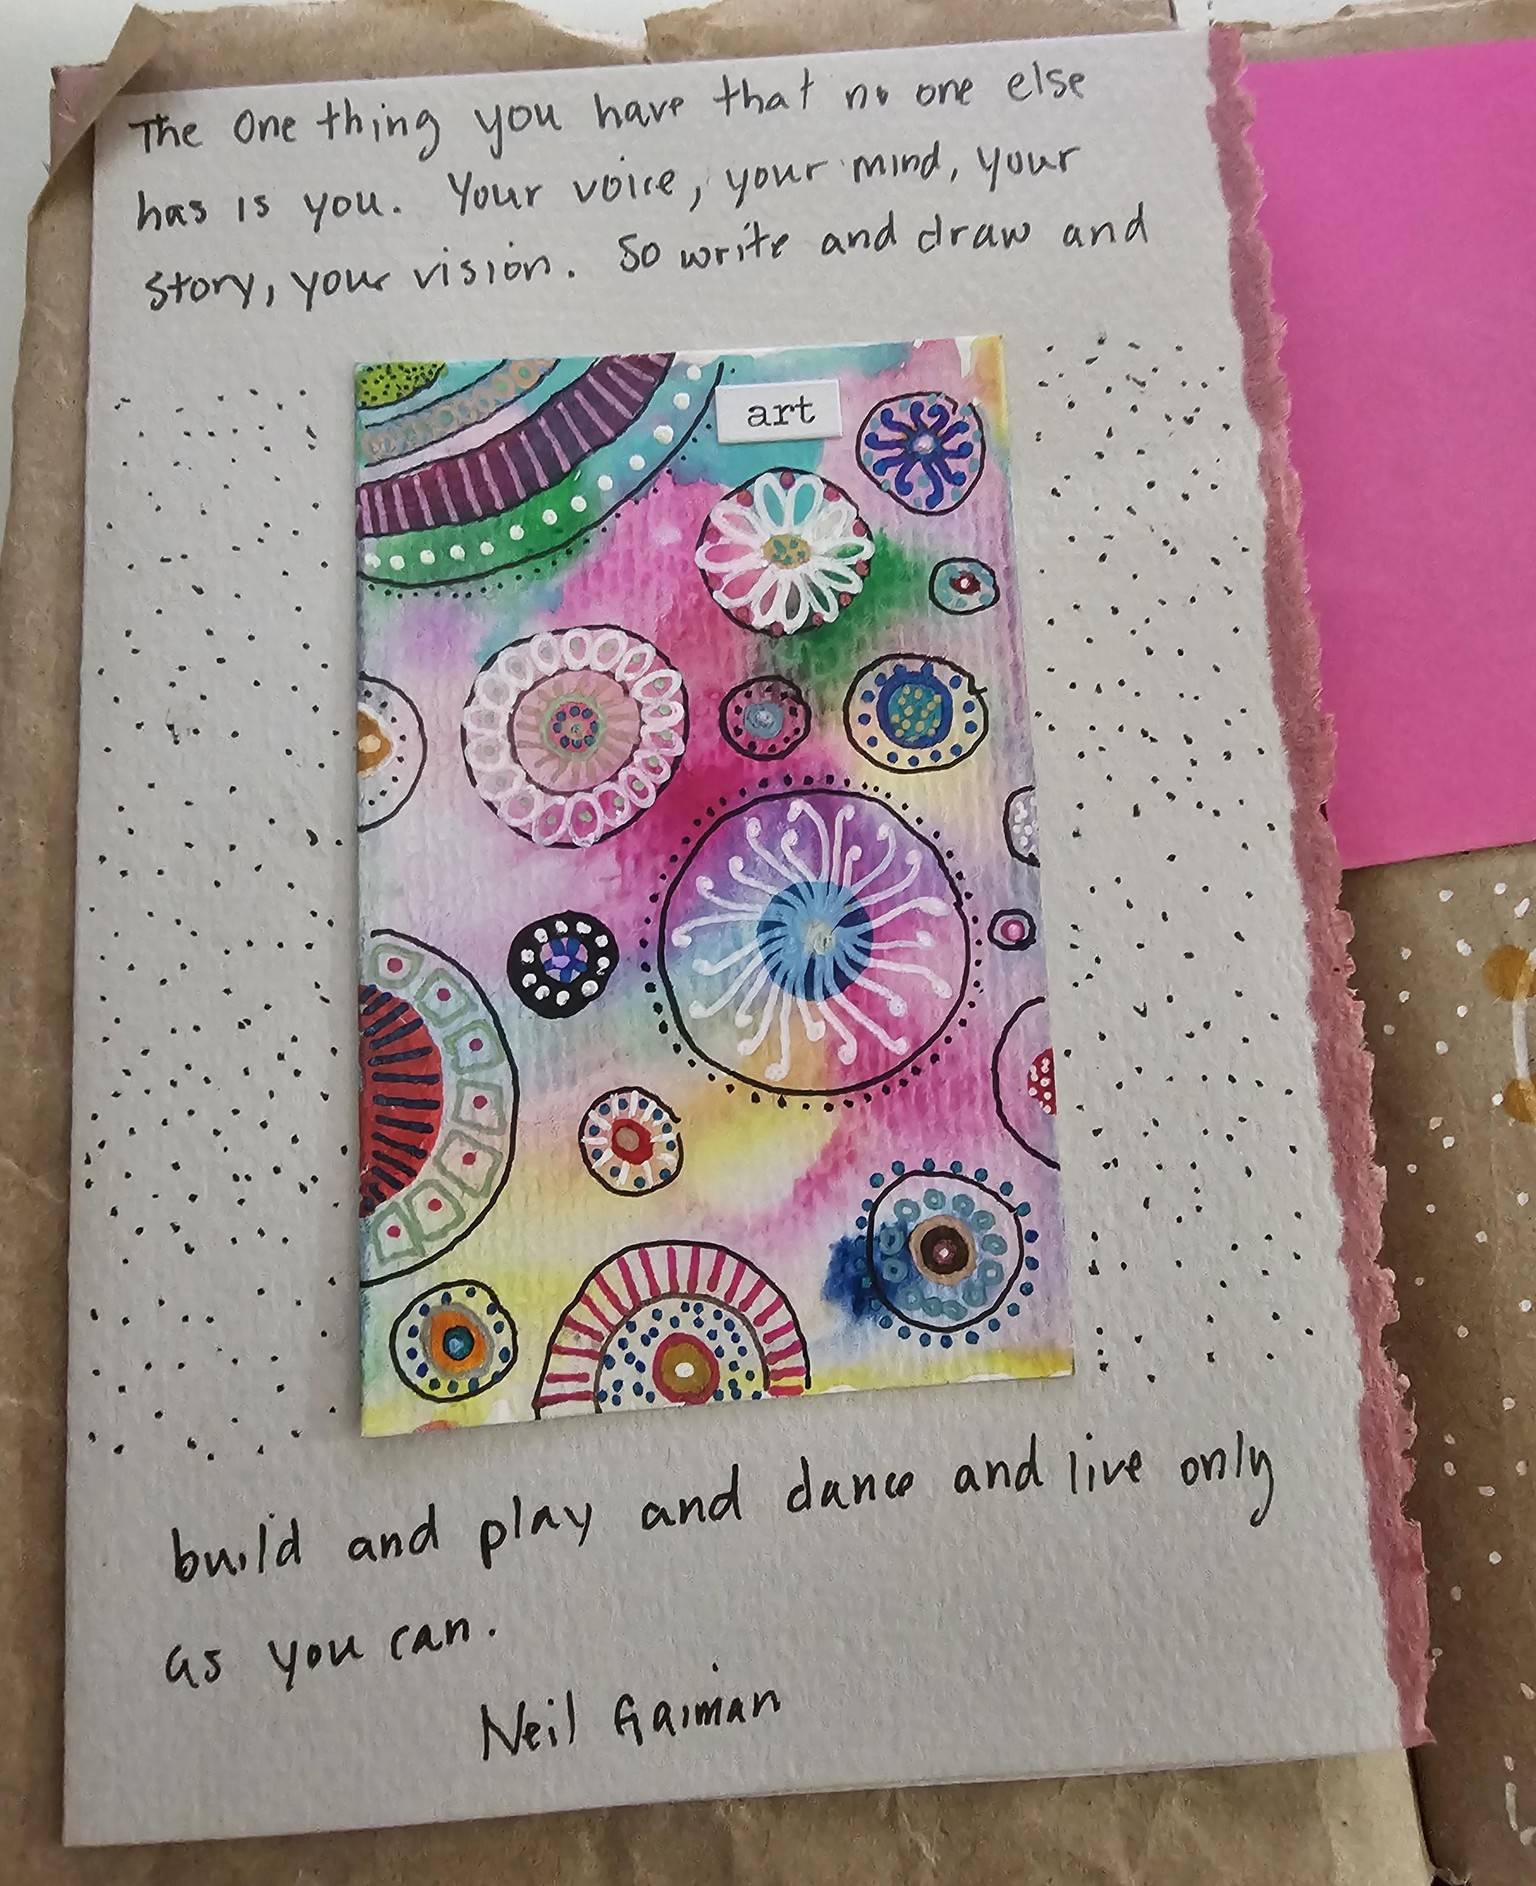 The One thing you have that no one else
has is you. Your voice, your mind, your
story, your vision. So write and draw and
art
build and play and dance and live only
as you can.
Neil Gaiman